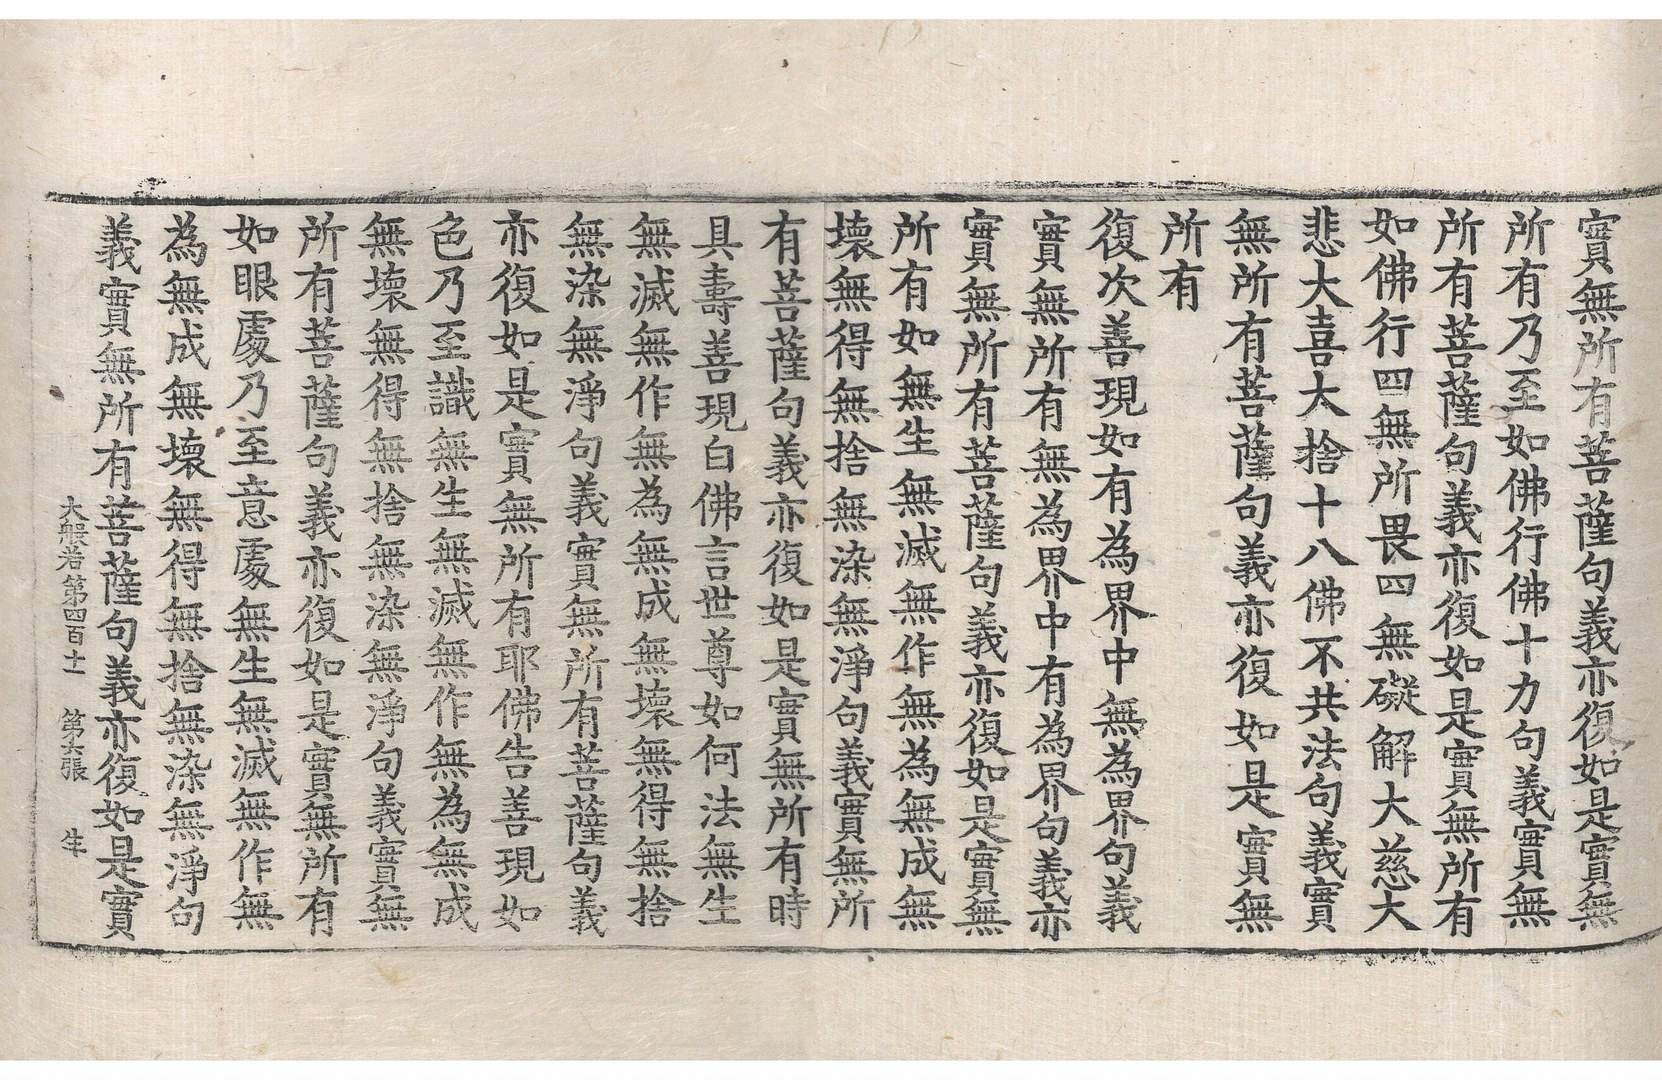 實無所有菩薩句義亦復如是實無
所有乃至如佛行佛十力句義實無
所有菩薩句義亦復如是實無所有
如佛行四無所畏四無礙解大慈大
悲大喜大捨十八佛不共法句義實
無所有菩薩句義亦復如是實無
所有
復次善現如有為界中無為界句義
實無所有無為界中有為界句義亦
實無所有菩薩句義亦復如是實無
所有如無生無滅無作無為無成無
壞無得無捨無染無淨句義實無所
有菩薩句義亦復如是實無所有時
具壽善現白佛言世尊如何法無生
無滅無作無為無成無壞無得無捨
無染無淨句義實無所有菩薩句義
亦復如是實無所有耶佛告善現如
色乃至識無生無滅無作無為無成
無壞無得無捨無染無淨句義實無
所有菩薩句義亦復如是實無所有
如眼處乃至意處無生無滅無作無
為無成無壞無得無捨無染無淨句
義實無所有菩薩句義亦復如是實
大般若第四百十一 第六張